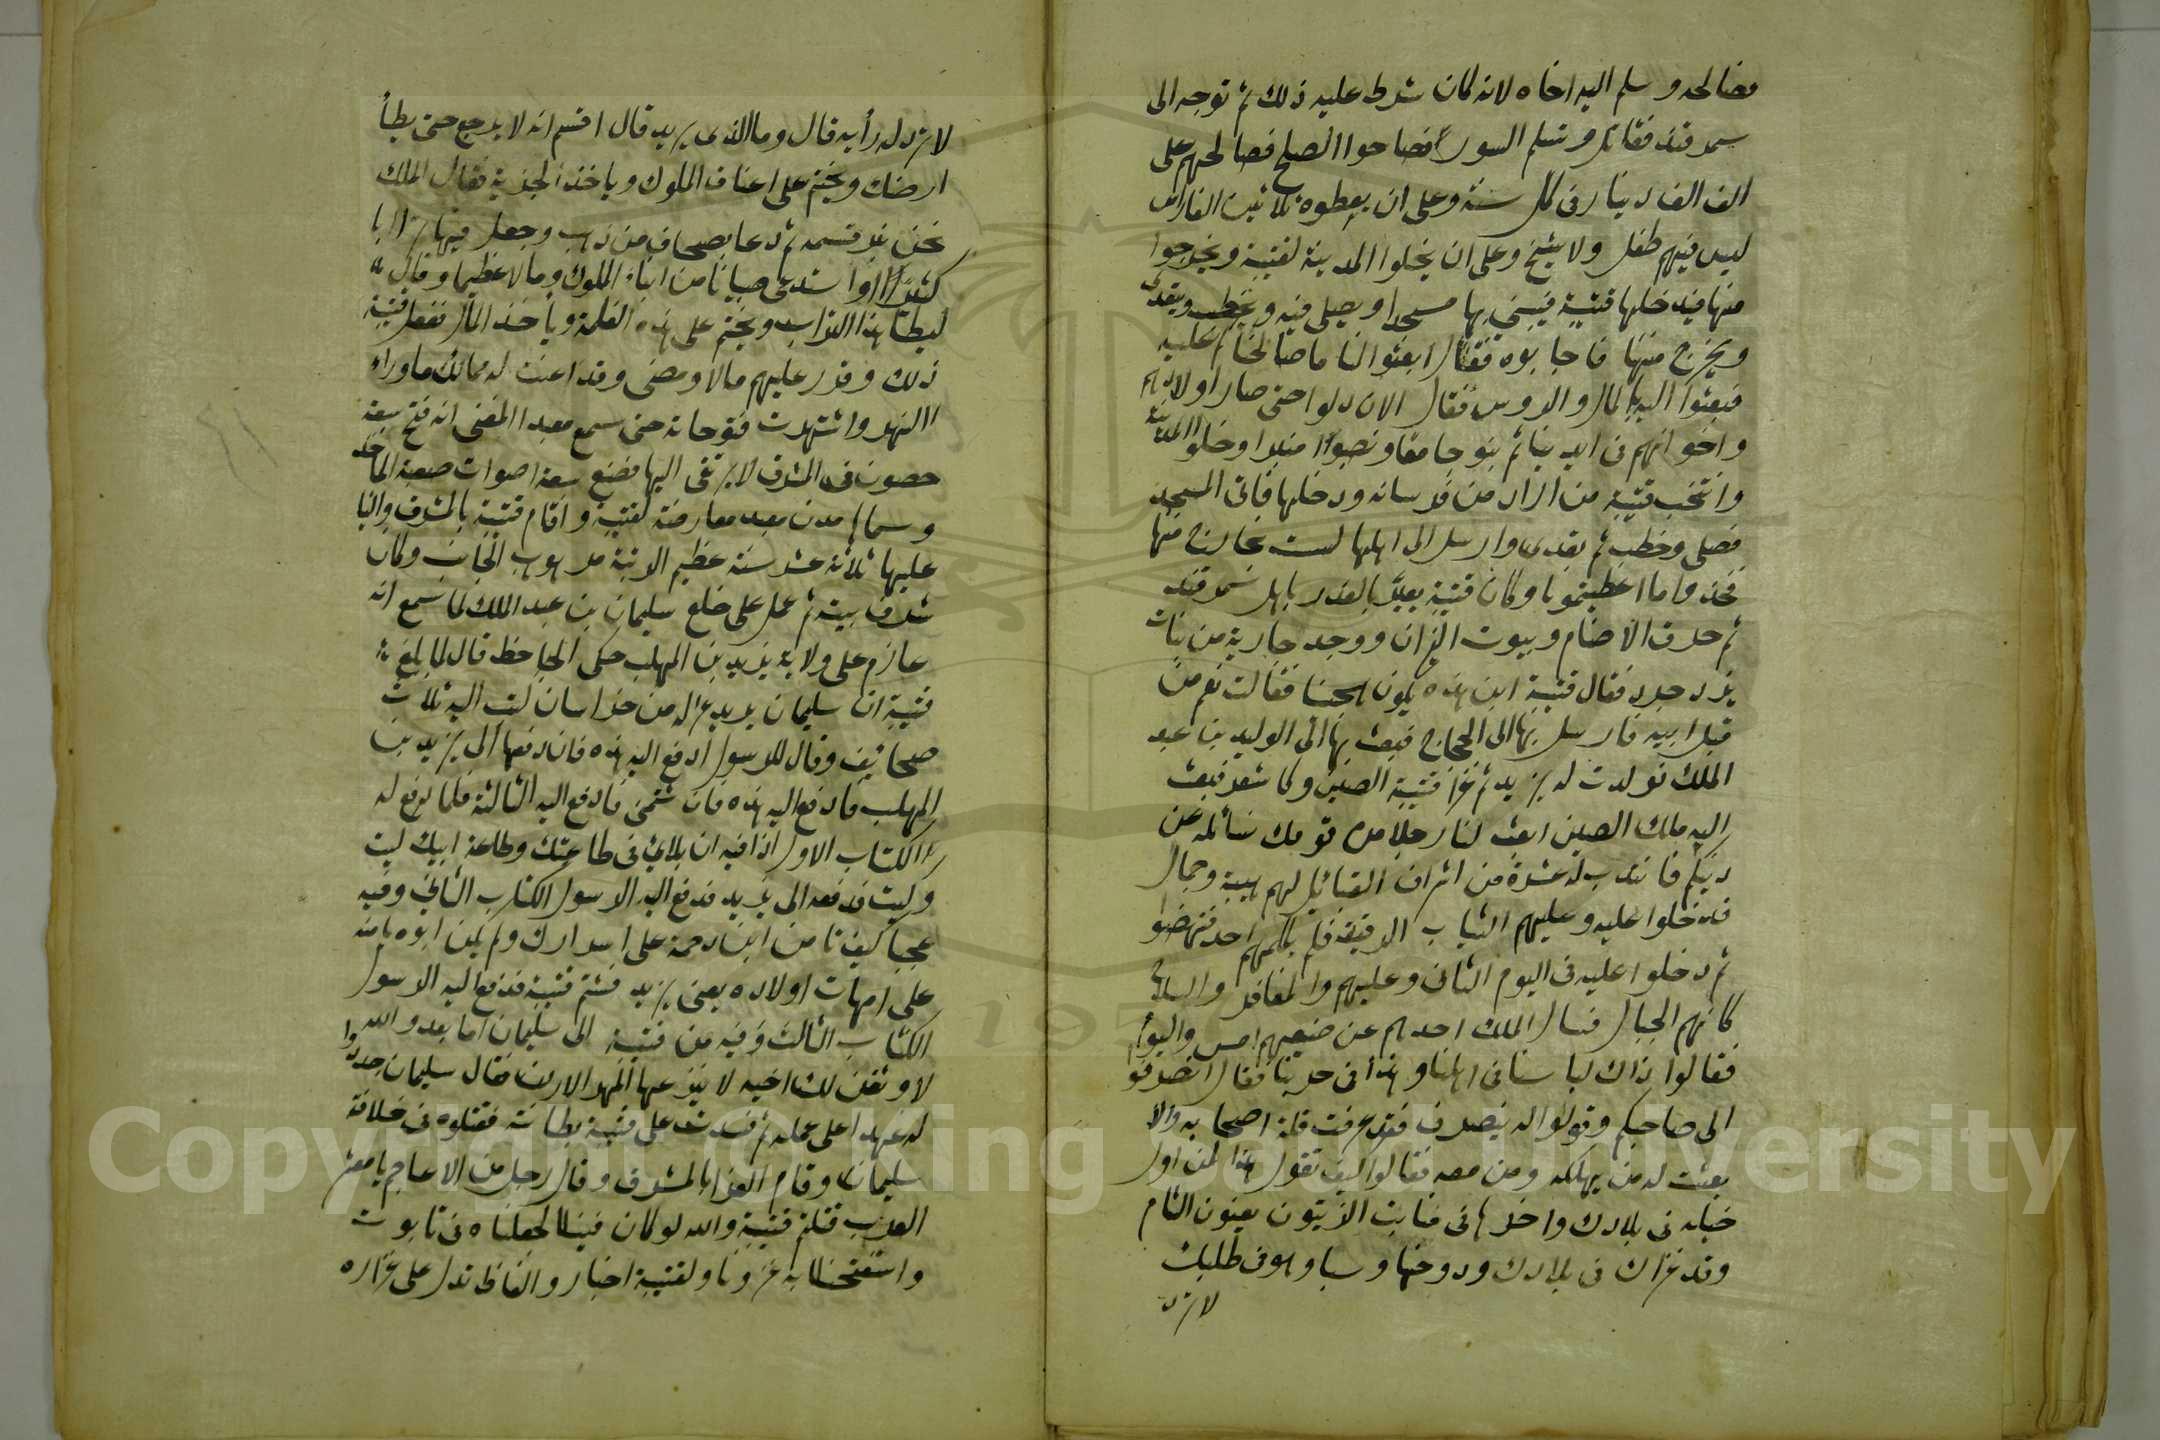 فصالحه وسلم اليه اخاه لانه كان شرط عليه ذلك ثم توجه الى
سمرقند فقاتل وتسلم السور فصاحوا الصلح فصالحهم على
الف الف دينار فى كل سنة وعلى ان يعطوه ثلاثين الف راس
ليس فيهم طفل ولا شيخ وعلى ان يخلوا المدينة لقتيبة ويخرجوا
منها فيدخلها قتيبة فيبنى بها مسجدا ويصلى فيه ويخطب ويتغدى
ويخرج منها فاجابوه فقال ابعثوا لنا ما صالحناكم عليه
فبعثوا اليه بالمال والروس فقال الان ذلوا حتى صار اولادهم
واخوانهم فى ايدينا ثم بنو جامعا ونصبوا منبرا وخلوا المدينة
وانتخب قتيبة من اراد من فرسانه ودخلها فاتى المسجد
فصلى وخطب ثم تغدى وارسل الى اهلها لست بخارج منها
فخذوا ما اعطيتمونا وكان قتيبة يعير بالغدر باهل سمرقند
ثم حرق الاصنام وبيوت النيران ووجد جارية من بنات
يزدجرد فقال قتيبة ابن هذه يكون هجينا فقالت نعم من
قبل ابيه فارسل بها الى الحجاج فبعث بها الى الوليد بن عبد
الملك فولدت له يزيد ثم غزا قتيبة الصين وكاشغر فبعث
اليه ملك الصين ابعث لنا رجلا من قومك نسائله عن
دينكم فانتدب له عشرة من اشراف القبائل لهم هيبة وجمال
فدخلوا عليه وعليهم الثياب الرقيقة فلم يكلمهم احد فنهضوا
ثم دخلوا عليه فى اليوم الثانى وعليهم والمغافر والسلاح
كانهم الجبال فسال الملك احدهم عن صنيعهم امس واليوم
فقالوا ذاك لباسنا فى اهلنا وهذا فى حربنا فقال انصرفوا
الى صاحبكم وقولوا له ينصرف فقد عرفت قلة اصحابه والا
بعثت له من يهلكه ومن معه فقالوا كيف تقول هذا لمن اول
خيله فى بلادك واخرها فى منابت الزيتون يعنون الشام
وقد غزاك فى بلادك ودوخها وسبا وهو فى طلبك
لا ترد
لا ترد له رأيه قال وما الذى يريد قال اقسم انه لا يرجع حتى يطأ
ارضك ويختم على اعناق الملوك وياخذ الجزية فقال الملك
نحن نبر قسمه ثم دعا بصحاف من ذهب وجعل فيها ترابا
كثيرا واستدعى صبيانا من ابناء الملوك ومالا عظيما وقال
ليطأ هذا التراب ويختم على هذه الغلمة ويأخذ المال ففعل قتيبة
ذلك وقرر عليهم مالا ومضى وقد اعنت له ممالك ماوراء
النهر واشتهرت فتوحاته حتى سمع معبد المغنى انه فتح سبعة
حصون فى المشرق لا يرتقى اليها فصنع سبعة اصوات صعبة الماخذ
وسماها مدن معبد معارضة لقتيبة واقام قتيبة بالمشرق واليا
عليها ثلاثة عشر سنة عظيم الرتبة مرهوب الجانب وكان
شرف بيته ثم عمل على خلع سليمان بن عبد الملك لما سمع انه
عازم على ولاية يزيد بن المهلب حكى الجاحظ قال لما بلغ
قتيبة ان سليمان يريد عزله من خراسان كتب اليه ثلاث
صحائف وقال للرسول ادفع اليه هذه فان دفعها الى يزيد بن
المهلب فادفع اليه هذه فان شتمنى فادفع اليه الثالثة فلما دفع له
الكتاب الاول اذا فيه ان بلائى فى طاعتك وطاعة ابيك كيت
وكيت فدفعه الى يزيد فدفع اليه الرسول الكتاب الثانى وفيه
عجبا كيف تامن ابن رحمة على اسرارك ولم يكن ابوه يامنه
على امهات اولاده يعنى يزيد فشتم قتيبة فدفع اليه الرسول
الكتاب الثالث وفيه من قتيبة الى سليمان اما بعد والله
لاوثقن لك اخية لا ينزعها المهر الارن فقال سليمان جددوا
له عهدا على عمله ثم فسدت على قتيبة بطانته فقتلوه فى خلافة
سليمان وقام العزا بالمشرق وقال رجل من الاعاجم يا معشر
العرب قتلتم قتيبة والله لو كان فينا لجعلناه فى تابوت
واستفتحنا به غزونا ولقتيبة اخبار والفاظ تدل على غزاره
Copyright © King Saud University